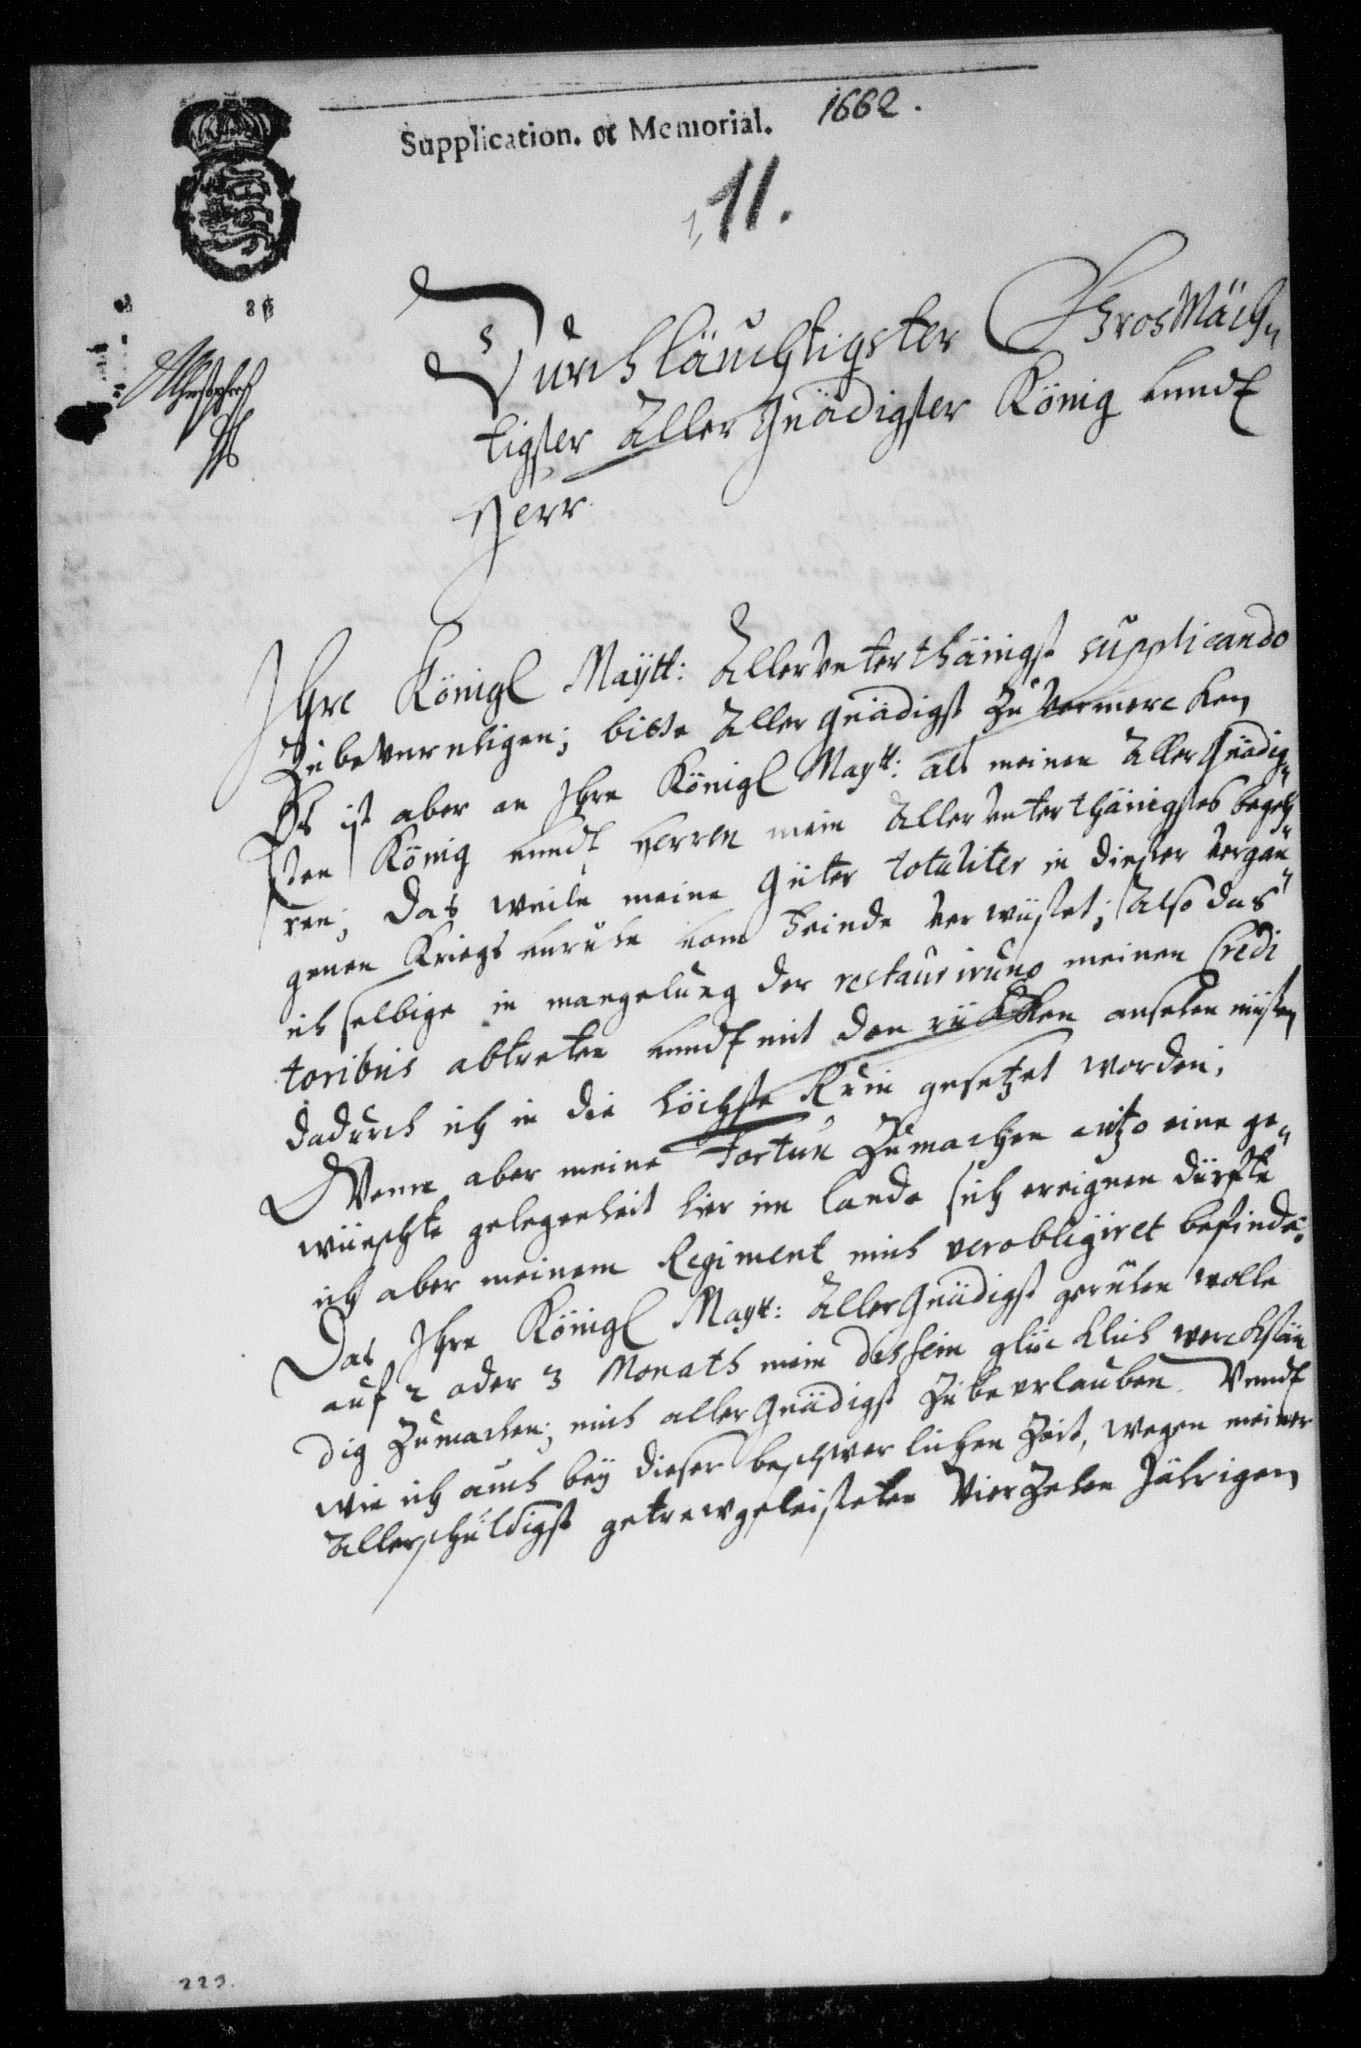 Supplication. oc Memorial. 1662.
11.
8 ß
Durchläuchtigster GrosMäch„
tigster Aller Gnädigster König unndt
Herr.
Ihre Königl Maytt: Allerunterthänigst supplicando
Zu beunruhigen; bitte Aller Gnädigst Zu vermercken
Es ist aber an Ihre Königl Maytt: als meinen Aller Gnädig„
sten König unndt Herren mein Allerunterthänigstes begeh„
ren; Das weiln meine Güter totaliter in dieser vergan„
genen Kriegs unruhe vom Feinde verwüstet; Also das
ich selbige in mangelung der restaurirung meinen Credi
toribus abtreten unndt mit den rücken ansehen müssen
dadurch ich in die höchste Ruin gesetzet worden;
Wenn aber meine Fortun Zumachen itzo eine ge„
wünschte gelegenheit hier im lande sich ereignen dürffte
ich aber meinem Regiment mich verobligiret befinde.
Das Ihre Königl Maytt: Aller Gnädigst geruhen wolle
auf 2 oder 3 Monath mein dessein glücklich werckstän
dig Zumachen; mich aller Gnädigst Zu beurlauben. Vnndt
wie ich auch bey dieser beschwerlichen Zeit, wegen meiner
Allerschuldigst getrewgeleisteten Vierzehen Jährigen
223.